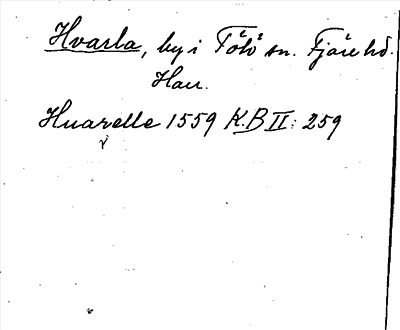 Hvarla, by i Tölö sn. Fjäre hd.
Hall.
Huarelle 1559 K.B II: 259
v